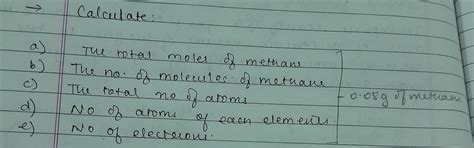 → Calculate:
a) The total moles of methane
b) The no. of molecules of methane
c) The total no of atoms
- 0.08g of methane
d) No of atoms of each elements
e) No of electrons.